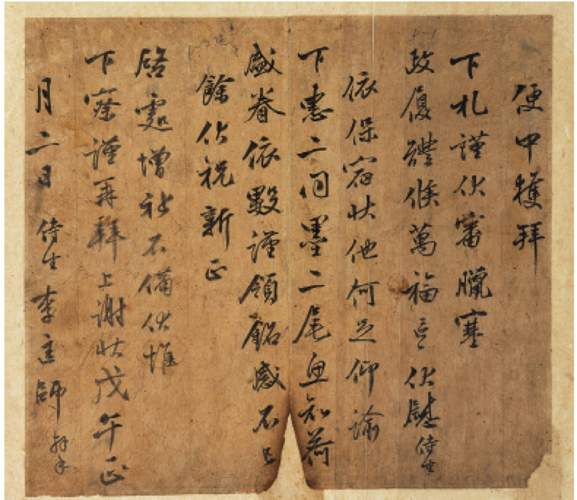 便中獲拜
下札謹伏審臘寒
政履禮候萬福 伏慰侍生
依保宿狀他何足仰諭
下惠二同墨二尾魚知荷
盛眷依數謹領銘感不已
餘伏祝新正
啓處增祉不備伏惟
下察謹再拜上謝狀戊午正
月二日侍生李 師